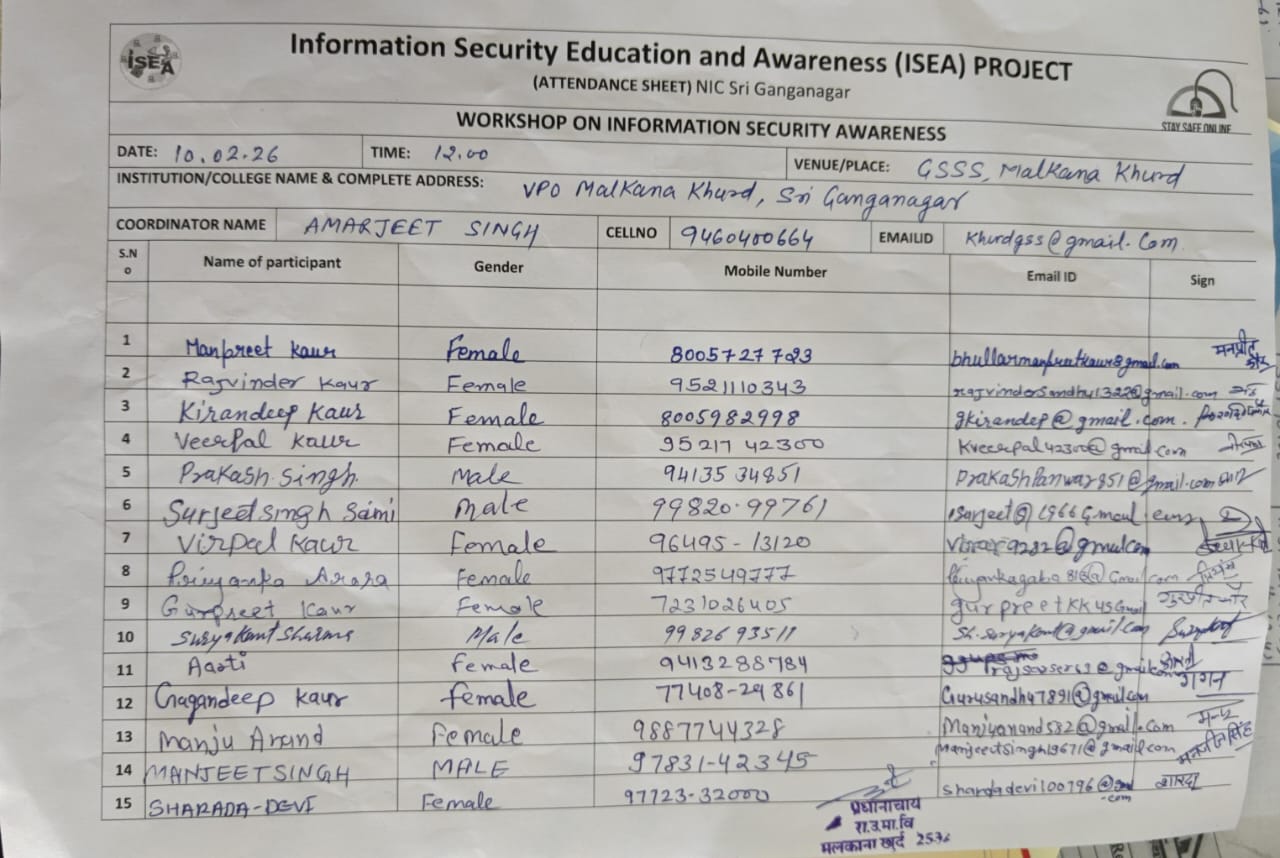 ISEA
Information Security Education and Awareness (ISEA) PROJECT
(ATTENDANCE SHEET) NIC Sri Ganganagar
STAY SAFE ONLINE
WORKSHOP ON INFORMATION SECURITY AWARENESS
DATE: 10.02.26 TIME: 12.00 VENUE/PLACE: GSSS, Malkana Khurd
INSTITUTION/COLLEGE NAME & COMPLETE ADDRESS: VPO Malkana Khurd, Sri Ganganagar
COORDINATOR NAME AMARJEET SINGH CELLNO 9460400664 EMAILID Khurdgss@gmail.Com
S.No Name of participant Gender Mobile Number Email ID Sign
1 Manpreet Kaur Female 8005727723 bhullarmanpreetkaur8@gmail.com मनप्रीत कौर
2 Rajvinder Kaur Female 9521110343 rajvindersandhu1322@gmail.com
3 Kirandeep Kaur Female 8005982998 gkirandep@gmail.com.
4 Veerpal Kaur Female 95217 42300 Kveerpal42300@gmail.com
5 Prakash Singh Male 94135 34851 PrakashPanwar851@gmail.com
6 Surjeet singh Saini Male 99820.99761
7 Virpal Kaur Female 96495-13120
8 Priyanka Arora Female 9772549777
9 Gurpreet Kaur Female 7231026405 gurpreetKK45Gmail
10 Suryakant Sharma Male 9982693511 Sh.Suryakant@gmail.Com
11 Aarti Female 9413288784
12 Gagandeep Kaur female 77408-29861 Gurusandhu7891@gmail.com गगन
13 Manju Anand Female 9887744328 Manjuanand582@gmail.Com मन्जु
14 MANJEET SINGH MALE 97831-42345 Manjeetsingh19671@gmail.com मनजीत सिंह
15 SHARADA-DEVI Female 97723-32000 shardadevi100796@ .com शारदा
प्रधानाचार्य
रा.उ.मा.वि
मलकाना खुर्द